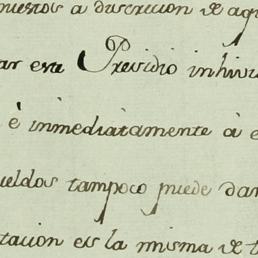 puestos a discrecion de aq
ar este Presidio inhiví
é inmediatamente á e
ueldos tampoco puede dar
tacion es la misma de t